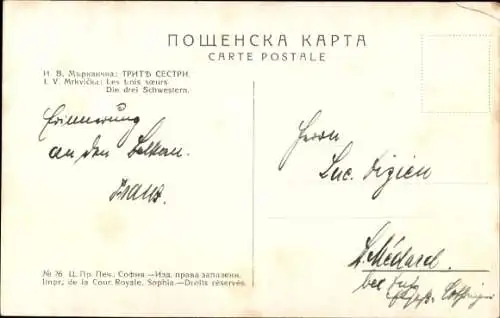 ПОЩЕНСКА КАРТА
CARTE POSTALE
И. В. Мърквичка: ТРИТѢ СЕСТРИ.
I. V. Mrkvička: Les trois sœurs.
Die drei Schwestern.
Erinnerung
an den Balkan.
Franz.
Herrn
Luc.
St. Médard.
bei
№ 76 Ц. Пр. Печ. София.—Изд. права запазени.
Impr. de la Cour Royale, Sophia.—Droits réservés.